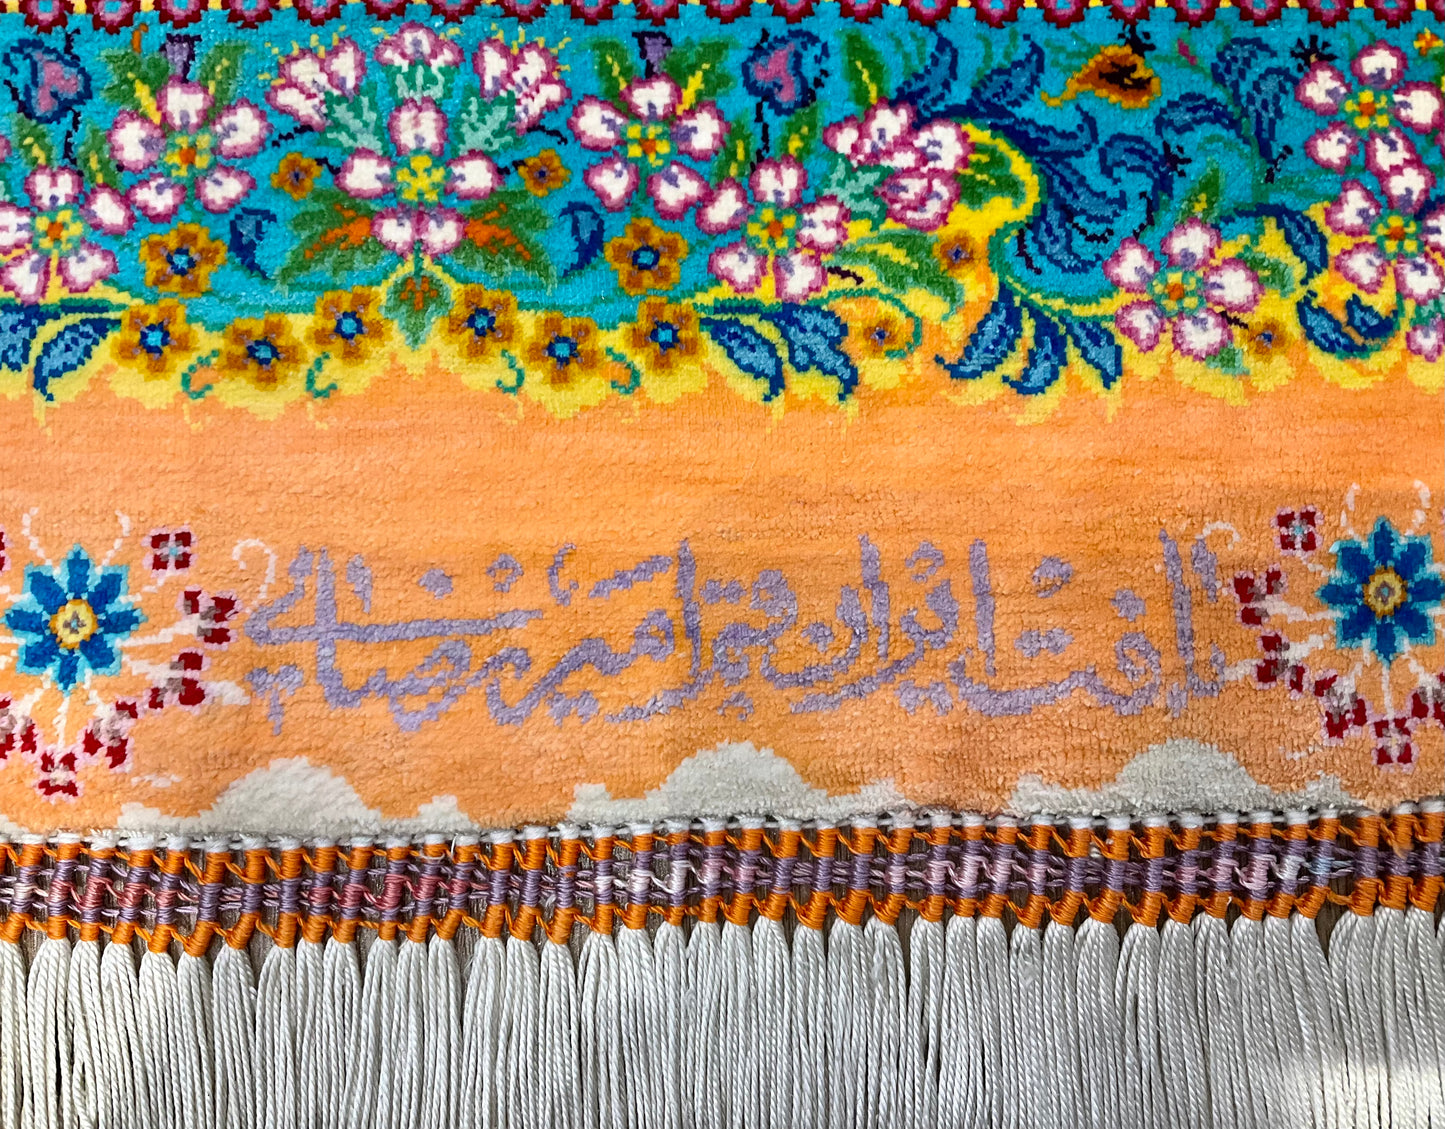 بافت ایران قم امیر رضائی